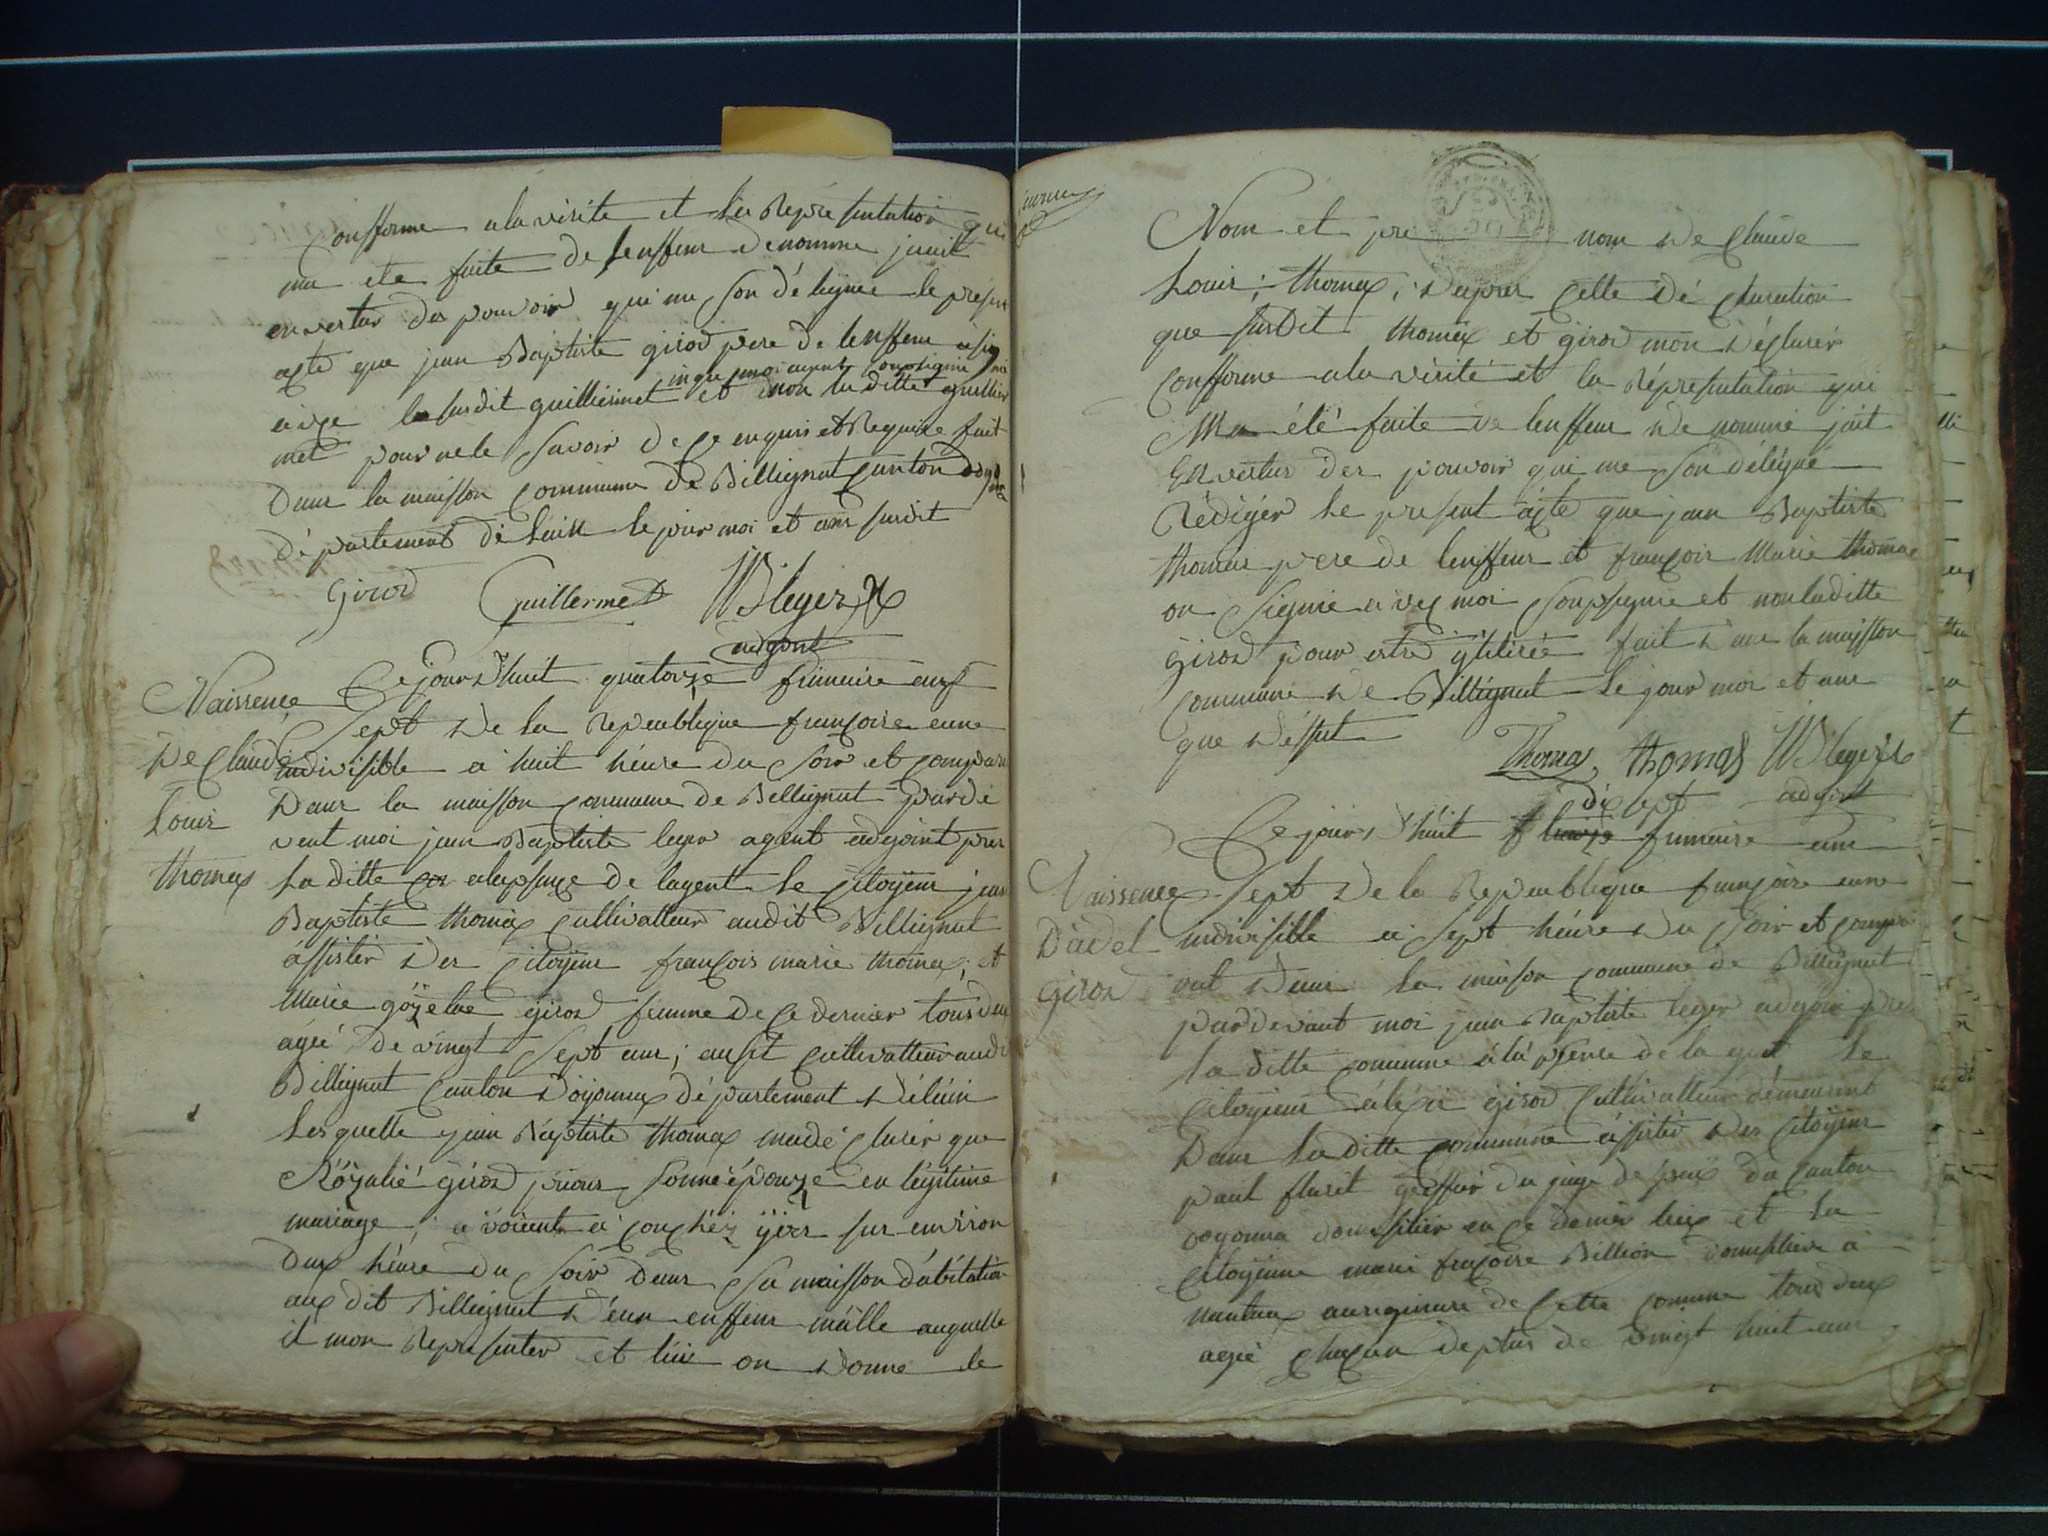 Confforme a la vérité et la Représentation qui
ma ete faite de lenffent denomme jauit
en vertur des pouvoir qui me son délégué le present
acte que jean Baptiste girod pere de lenffent a sig
avec le susdit guillermet et non laditte guillier
met pour ne le savoir de ce enquis et Requise fait
Dans la maisson commune de Billiegnat canton doyo
département de Lain le jour moi et ans susdit
Girod Guillermet JB leger
adjoint
Naissence
De Claude
Louis
Thomas
Ce jour dhuit quatorze frimaire ans
Sept De la Republique françoise eune
indivisible a huit héure du soir et compara
Dans la maisson commune de Billiegnat parde
vent moi jean Baptiste leger agent adjoint pour
La ditte a lapsance de lagent Le Citoÿen jean
Baptiste thomas cultivatteur audit Billiegnat
assister Des Citoÿens françois marie thomas, et
Marie girod femme de ce dernier tous deux
agée de vingt sept ans; ausit cultivatteur audit
Billiegnat canton Doyonnax département Delain
Lesquelle jean Baptiste thomas ma déclarer que
Rozalié girod épouze en légitime
mariage, couchéz ÿier sur environ
Dux héure du soir dans sa maisson dabitation
aux dit Billiegnat D'eun enffens mâlle auquelle
il mon Représenter et lui on Donne le
Nom et pre nom De Claude
Louis; thomas; Dapres cette Dé claration
que susdit thomas et girod mon Déclarér
Confforme a la vérité et la Répresentation qui
Ma été faite de lenffens De nommé jait
En vertus des pouvoir qui me son délégué
Rédiger Le present acte que jean Baptiste
thomas pere de lenffens et françois Marie thomas
on signié avec moi soussignie et non laditte
girod pour estre fait Dans la maisson
commune De Billiegnat Le jour moi et ans
que Déssut
Thomas, thomas JB leger
adjoint
Naissence
D'adel
Girod
Ce jour D'huit dix sept frimaire ans
Sept De la Republique françoise eune
indivisible a sept héure Du soir et compar
ant Dans La maison commune de Billiegnat
pardevant moi jean Baptiste leger adjoin pre
La ditte commune a la psence de la gent Le
Citoyien aléxi girod Cultivatteur démeurent
Dans La ditte commune assister Des Citoyens
paul greffier du juge de paix du canton
doyonna domisilier en ce dernier lieux et la
Citoyenne marie françoise Billion domisiliere a
nantua de Cette commune tous deux
agéé chacun deplus de vingt huit ans